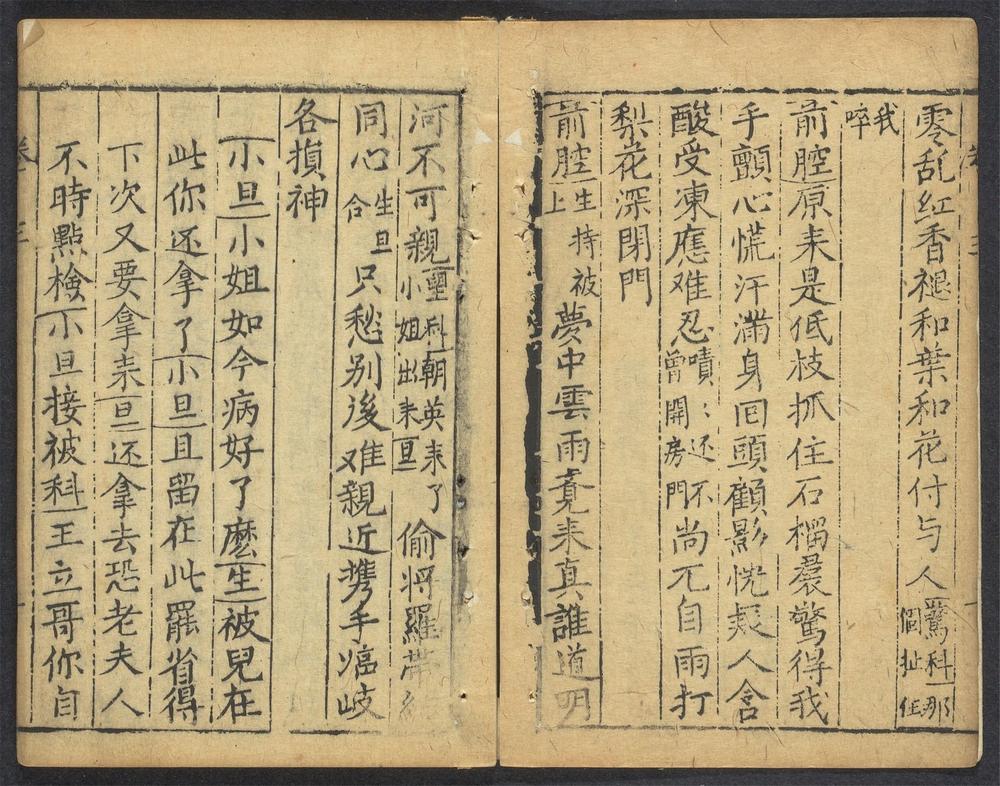 零乱红香褪和葉和花付与人驚科那個扯住
我啐
前腔原来是低枝抓住石榴裙驚得我
手顫心慌汗滿身囘頭顧影恍疑人含
酸受凍應难忍嘖〻还不曾開房門尚兀自雨打
梨花深閉門
前腔生持被上夢中雲雨竟来真誰道明
河不可親望科朝英来了小姐出来旦偷将羅帶
同心生旦合只愁别後难親近携手岐
各損神
小旦小姐如今病好了麽生被兒在
此你还拿了小旦且留在此罷省得
下次又要拿来旦还拿去恐老夫人
不時點檢小旦接被科王立哥你自